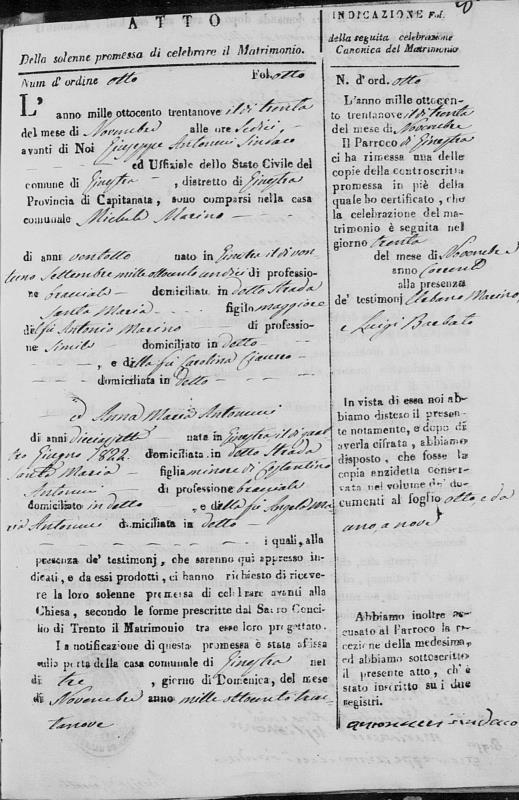 ATTO
Della solenne promessa di celebrare il Matrimonio.
Num d'ordine otto Fol. otto
L'anno mille ottocento trentanove il dì trenta
del mese di Novembre alle ore sedici,
avanti di Noi Giuseppe Antonucci Sindaco
ed Uffiziale dello Stato Civile del
comune di Ginestra, distretto di Ginestra
Provincia di Capitanata, sono comparsi nella casa
comunale Michele Marino
di anni ventotto nato in Ginestra il dì ven-
tuno Settembre mille ottocento undici di professio-
ne bracciale domiciliato in detto Strada
Santa Maria figlio maggiore
del fu Antonio Marino di professio-
ne simile domiciliato in detto
, e della fu Carolina
domiciliata in detto
ed Anna Maria Antonucci
di anni diciassette nata in Ginestra il dì quat
tro Giugno 1822 domiciliata in detto Strada
Santa Maria figlia minore di Costantino
Antonucci di professione bracciale
domiciliato in detto, e della fu Angela Ma
ria Antonucci domiciliata in detto
i quali, alla
presenza de' testimonj, che saranno qui appresso in-
dicati, e da essi prodotti, ci hanno richiesto di riceve-
re la loro solenne promessa di celebrare avanti alla
Chiesa, secondo le forme prescritte dal Sacro Conci-
lio di Trento il Matrimonio tra esse loro progettato.
La notificazione di questa promessa è stata affissa
sulla porta della casa comunale di Ginestra nel
dì tre, giorno di Domenica, del mese
di Novembre anno mille ottocento tren-
tanove
INDICAZIONE Fol. 8
della seguita celebrazione
Canonica del Matrimonio
N. d'ord. otto
L'anno mille ottocen-
to trentanove il dì trenta
del mese di Novembre
Il Parroco di Ginestra
ci ha rimessa una delle
copie della controscritta
promessa in piè della
quale ha certificato, che
la celebrazione del ma-
trimonio è seguita nel
giorno trenta
del mese di Novembre
anno corrente
alla presenza
de' testimonj Marino,
e Luigi Barbato
In vista di essa noi ab-
biamo disteso il presen-
te notamento, e dopo di
averla cifrata, abbiamo
disposto, che fosse la
copia anzidetta conser-
vata nel volume de' do-
cumenti al foglio otto e da
ano, a nove
Abbiamo inoltre ac-
cusato al Parroco la re-
cezione della medesima,
ed abbiamo sottoscritto
il presente atto, ch'è
stato inscritto su i due
registri.
Antonucci Sindaco